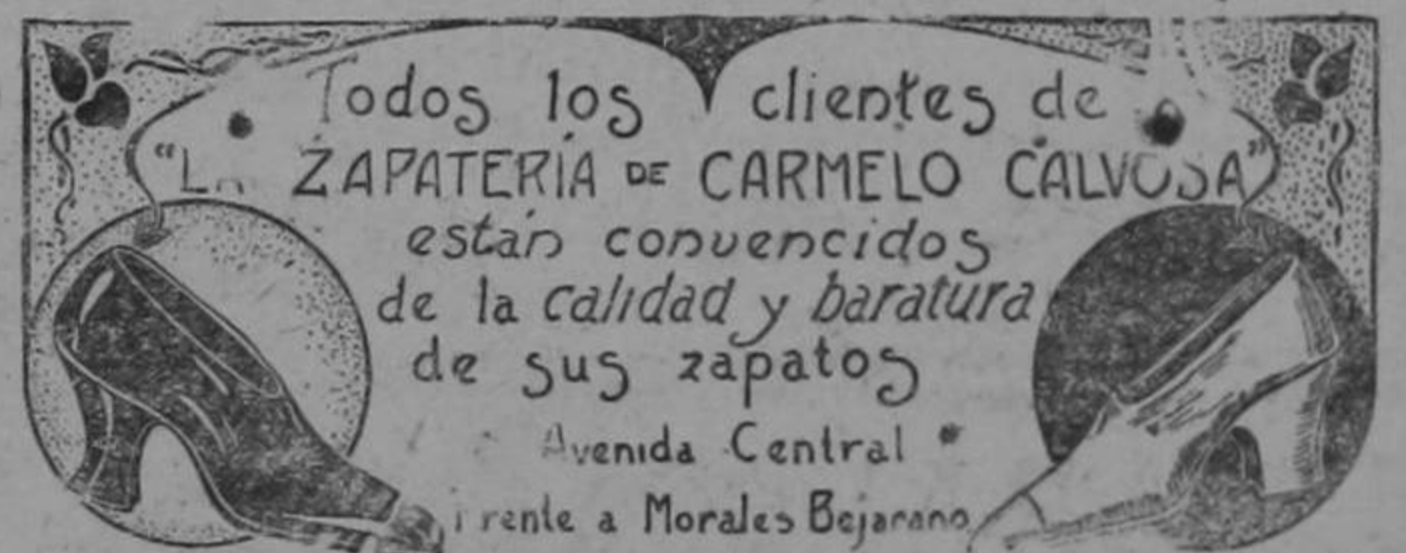 Todos los clientes de
"LA ZAPATERÍA DE CARMELO CALVOSA"
están convencidos
de la calidad y baratura
de sus zapatos
Avenida Central
frente a Morales Bejarano